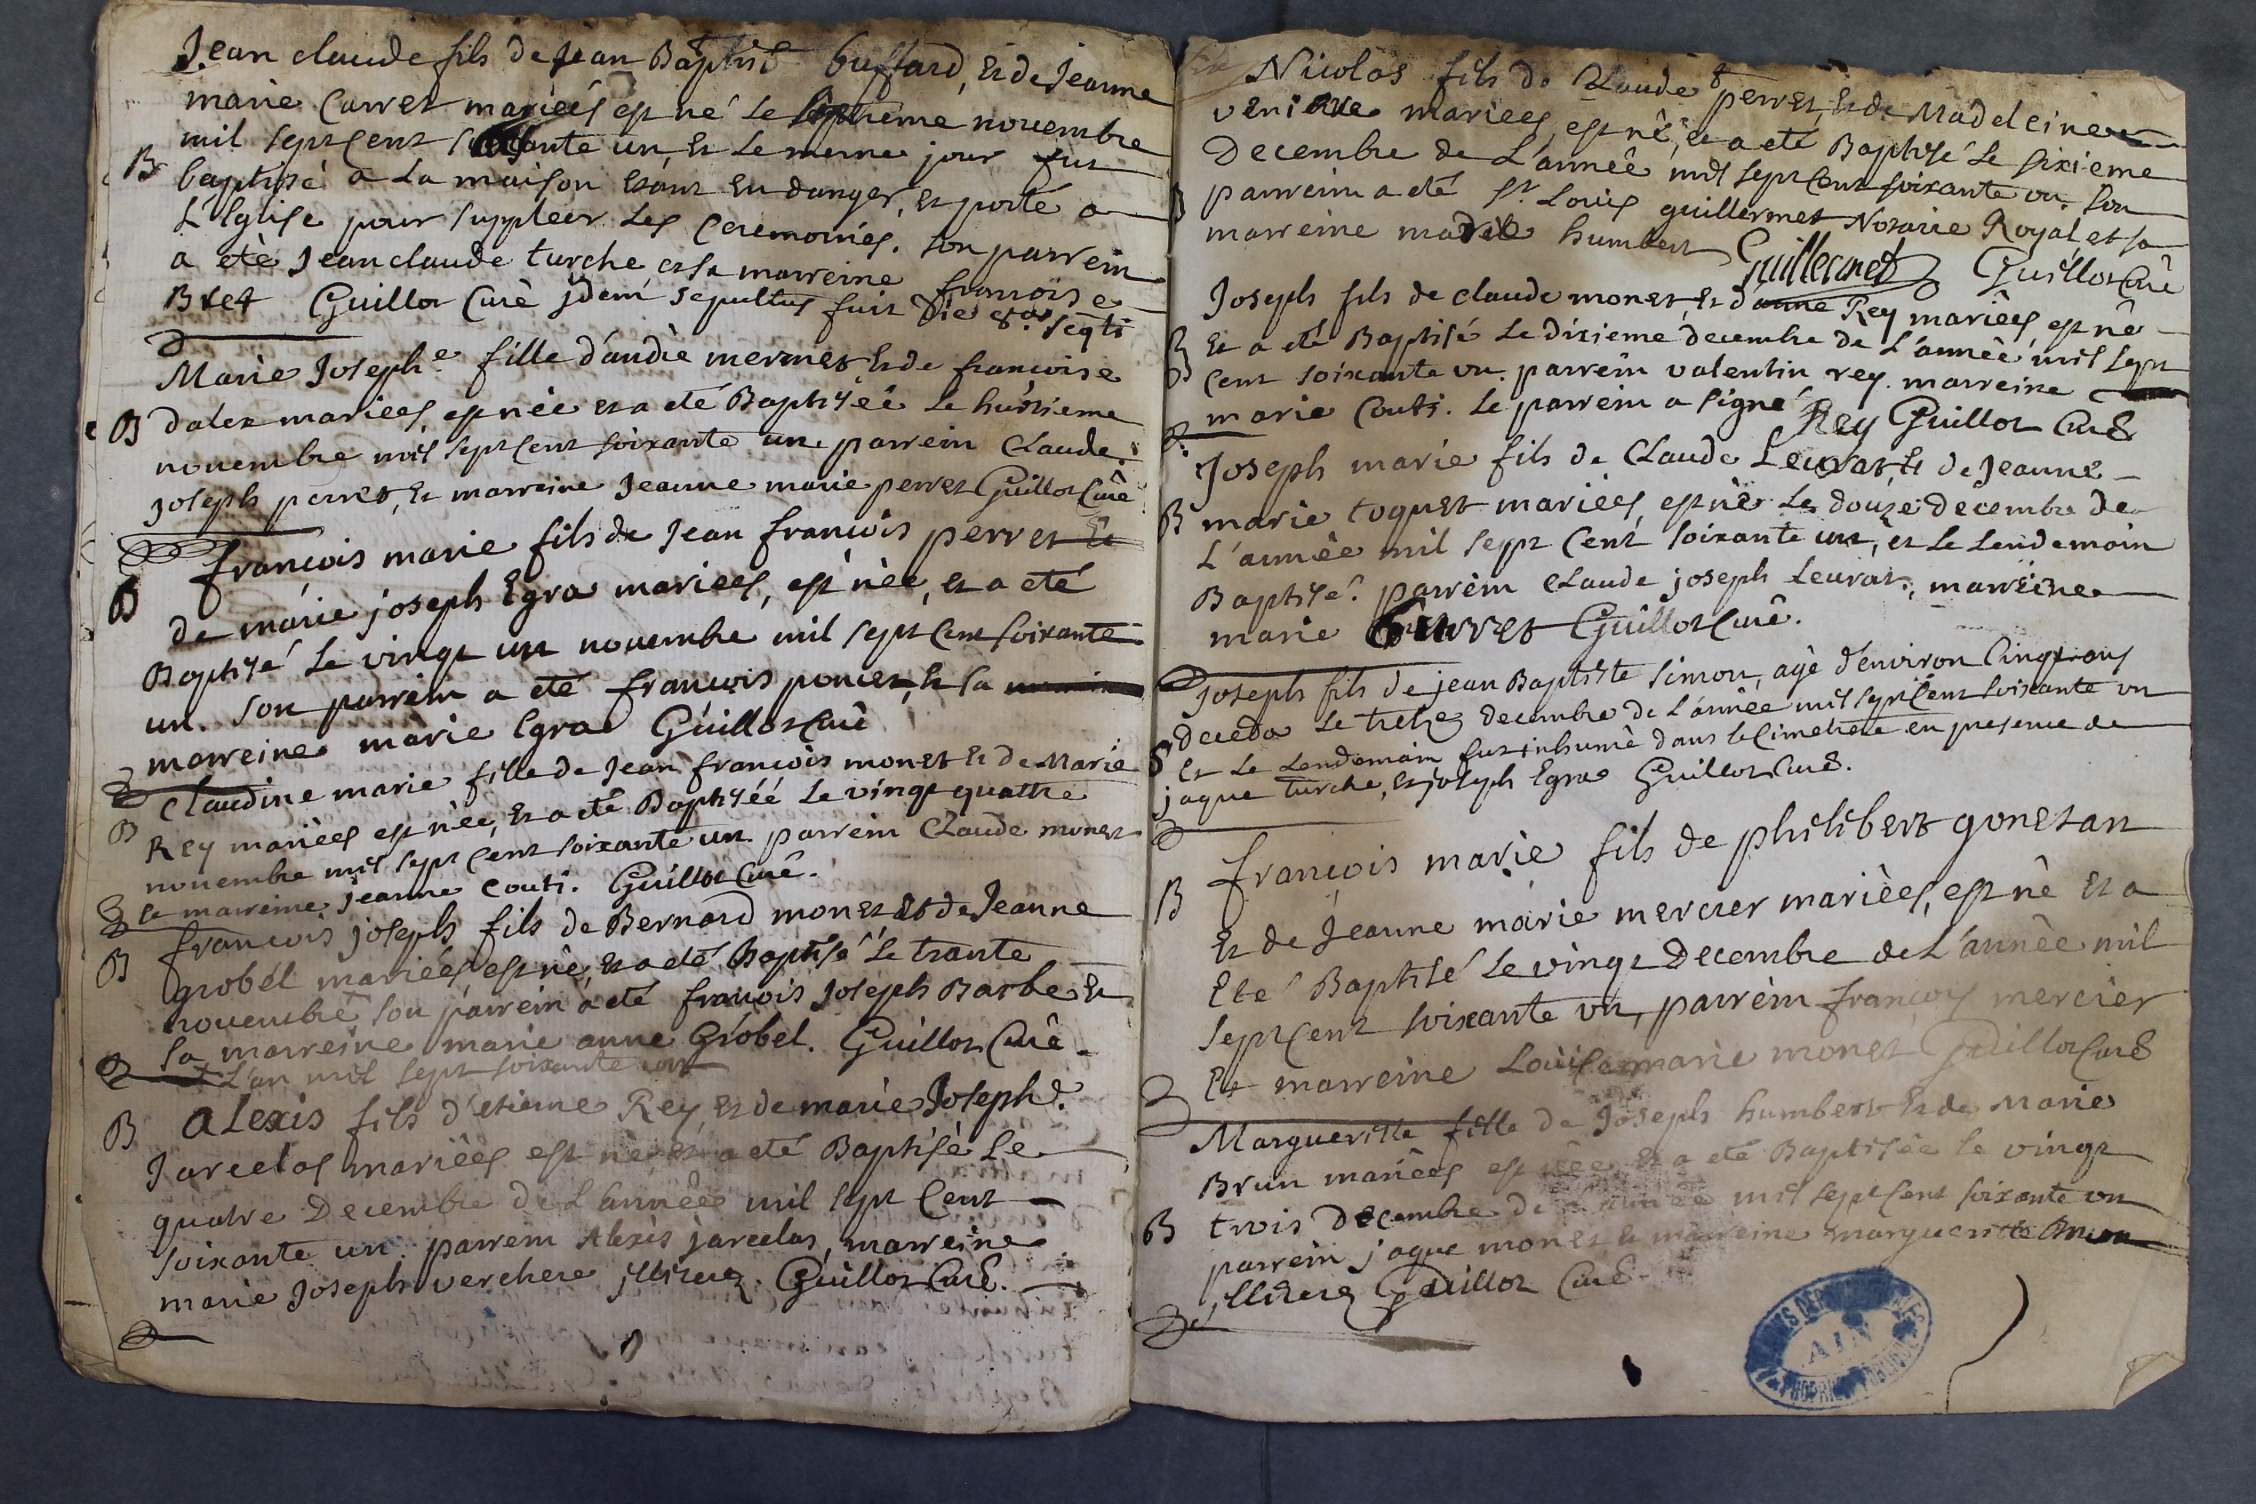 Jean claude fils de Jean Baptist buffard, et de Jeanne
marie Carret mariéés est né le septième novembre
mil sept cent soixante un, et le meme jour fut
B baptisé a la maison etant en danger, et porté a
L'Eglise pour suppléer les ceremonies. son parrein
a été Jean claude turche et sa marreine françoise
Bret Guillot Curé jdem sepultus fuit die 8.a seqti
Marie Joseph.e fille d'andré mermet et de françoise
B dalex mariees, est née et a eté Baptisée le huitieme
novembre mil sept cent soixante un. parrein Claude
joseph perret, et marreine Jeanne marie perret Guillot Curé
B françois marie fils de Jean françois perret et
de marie joseph Egra mariees, est née, et a eté
Baptisé le vingt un novembre mil sept cent soixante
un. son parrein a eté françois poncet, et sa
marreine marie Egra Guillot Curé
Claudine marie fille de Jean françois monet et de Marie
B Rey mariées est née, et a eté Baptiséé le vingt quattre
novembre mil sept cent soixante un. parrein Claude monet
et marreine jeanne Couti. Guillot Curé.
B françois joseph fils de Bernard monet et de Jeanne
grobél mariéés est né, et a eté Baptisé le trante
novembre son parrein a eté françois Joseph Barbe et
sa marreine marie anne Grobel. Guillot Curé.
L'an mil sept soixante un
B alexis fils d'etiene Rey, et de marie Joseph.e
Jarcelas mariéés est né, et a eté Baptisé le
quatre Decembre de l'année mil sept Cent
soixante un. parrein Alexis jarcelas, marreine
marie Joseph verchere jlliterez. Guillot Curé.
Nicolas fils de Claude perret, et de Madeleine
mariees, est né, et a eté Baptisé le sixieme
Decembre de L'année mil sept cent soixante un. son
B parrein a eté Sr. Louis guillermet Notaire Royal et sa
marreine marie humbert Guillermet Guillot Curé
Joseph fils de claude monet, et d'anne Rey mariéés est né
B et a eté Baptisé le dixieme decembre de L'année mil sept
Cent soixante un. parrein valentin rey. marreine
marie Couti. le parrein a signé Rey Guillot Curé
Joseph marie fils de Claude Leurat, et de Jeanne
B marie toquet mariées, est né le douze decembre de
L'année mil sept Cent soixante un, et le Lendemain
Baptisé. parrein Claude joseph Leurat, marreine
marie perret Guillot Curé.
joseph fils de jean Baptiste simon, agé d'environ Cinq ans
deceda le treize decembre de l'année mil sept Cent soixante un
S et le Lendemain fut inhumé dans le Cimetiere en presence de
jaque turche, et joseph Egra Guillot Curé.
françois marie fils de philibert gonetan
B et de Jeanne marie mercier mariées, est né et a
Eté Baptisé le vingt Decembre de L'année mil
sept Cent soixante un, parrein françois mercier
Et marreine Louise marie monet Guillot Curé
Margueritte fille de Joseph humbert et de Marie
Brun mariées est née et a eté Baptisée le vingt
B trois Decembre de l'année mil sept Cent soixante un
parrein jaque monet, et marreine margueritte Brun
jlliterez Guillot Curé
AIN